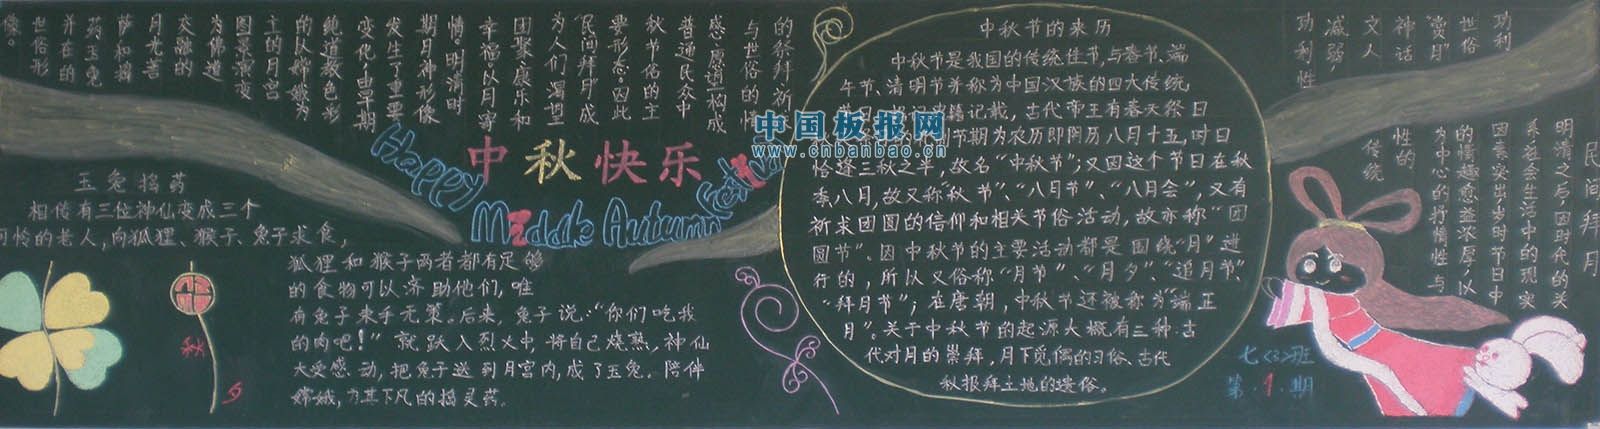 中秋节的来历
中秋节是我国的传统佳节,与春节、端
午节、清明节并称为中国汉族的四大传统
记载,古代帝王有春天祭日
节期为农历即阴历八月十五,时日
恰逢三秋之半,故名“中秋节”;又因这个节日在秋
季八月,故又称“秋节”、“八月节”、“八月会”,又有
祈求团圆的信仰和相关节俗活动,故亦称“团
圆节”。因中秋节的主要活动都是围绕“月”进
行的,所以又俗称“月节”、“月夕”、“追月节”、
“拜月节”;在唐朝,中秋节还被称为“端正
月”。关于中秋节的起源大概有三种:古
代对月的崇拜,月下觅偶的习俗、古代
秋报拜土地的遗俗。
民间拜月
明清之后,因时代的关
系,社会生活中的现实
功利因素突出,岁时节日中
世俗的情趣愈益浓厚,以
“赏月”为中心的抒情性与
神话性的
文人传统
减弱,
功利性
的祭拜、祈
与世俗的情
感、愿望构成
普通民众中
秋节俗的主
要形态,因此
“民间拜月”成
为人们渴望
团聚、康乐和
幸福;以月寄
情。明清时
期月神形像
发生了重要
变化,由早期
纯道教色彩
的以嫦娥为
主的月宫
图景演变
为佛道
交融的
月光菩
萨和捣
药玉兔
并在的
世俗形
像。
中秋快乐
Happy Middle Autumn Festival
玉兔捣药
相传有三位神仙变成三个
可怜的老人,向狐狸、猴子、兔子求食,
狐狸和猴子两者都有足够
的食物可以济助他们,唯
有兔子束手无策。后来,兔子说:“你们吃我
的肉吧!”就跃入烈火中,将自己烧熟,神仙
大受感动,把兔子送到月宫内,成了玉兔。陪伴
嫦娥,为其下凡的捣灵药。
秋
夕
七<3>班
第1期
中国板报网
www.cnbanbao.cn